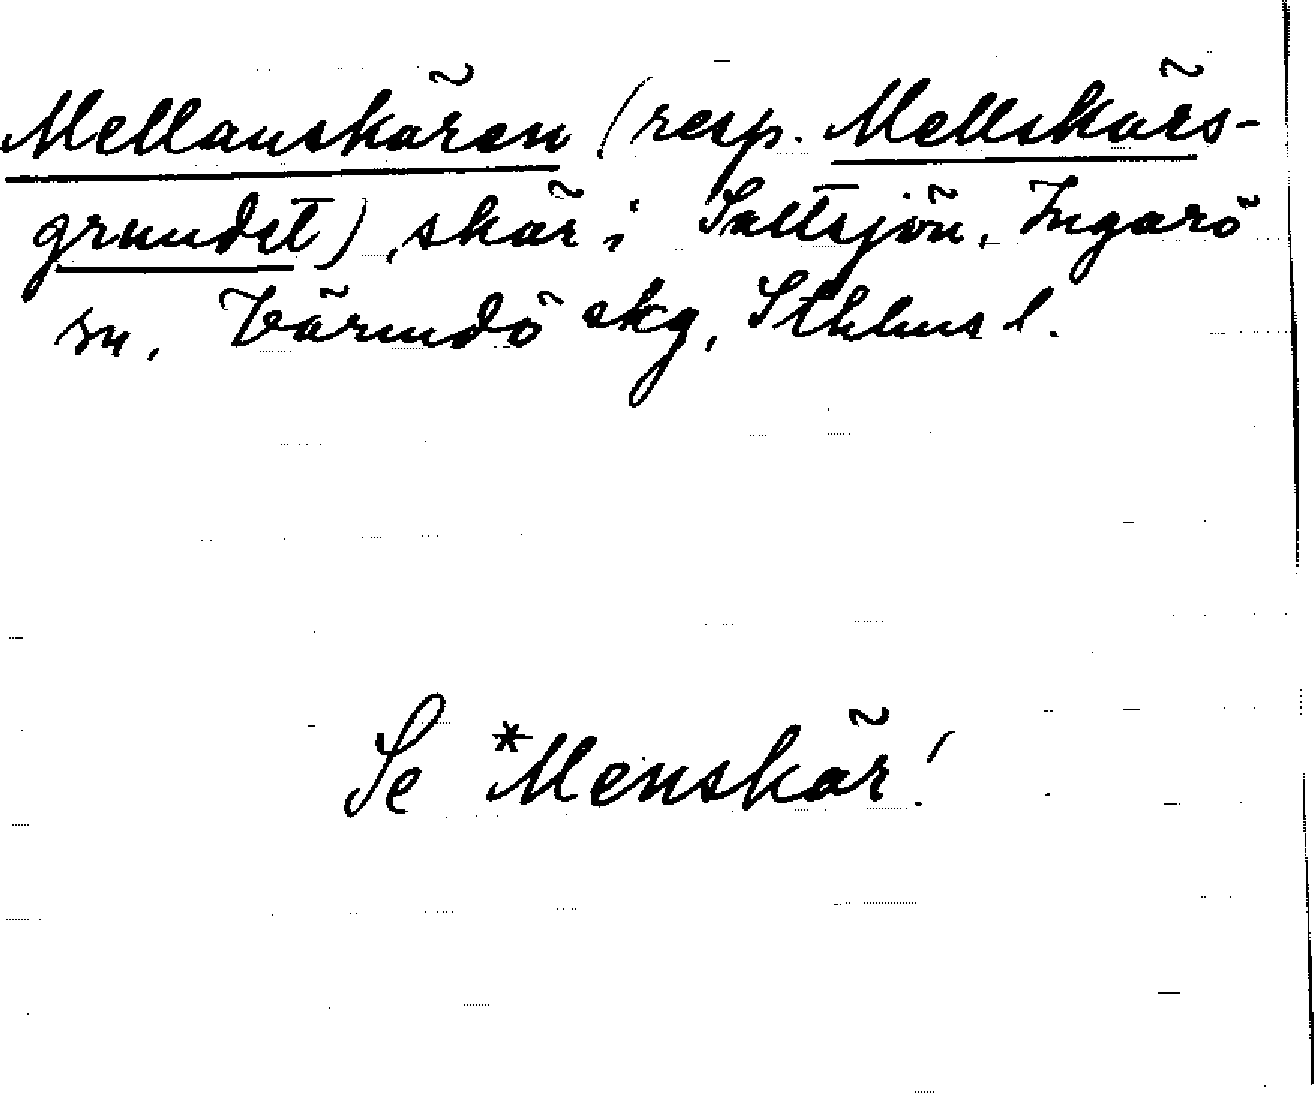 Mellanskären (resp. Mellskärs-
grundet), skär i Saltsjön, Ingarö
sn, Värmdö skg, Sthlms l.
Se *Menskär!